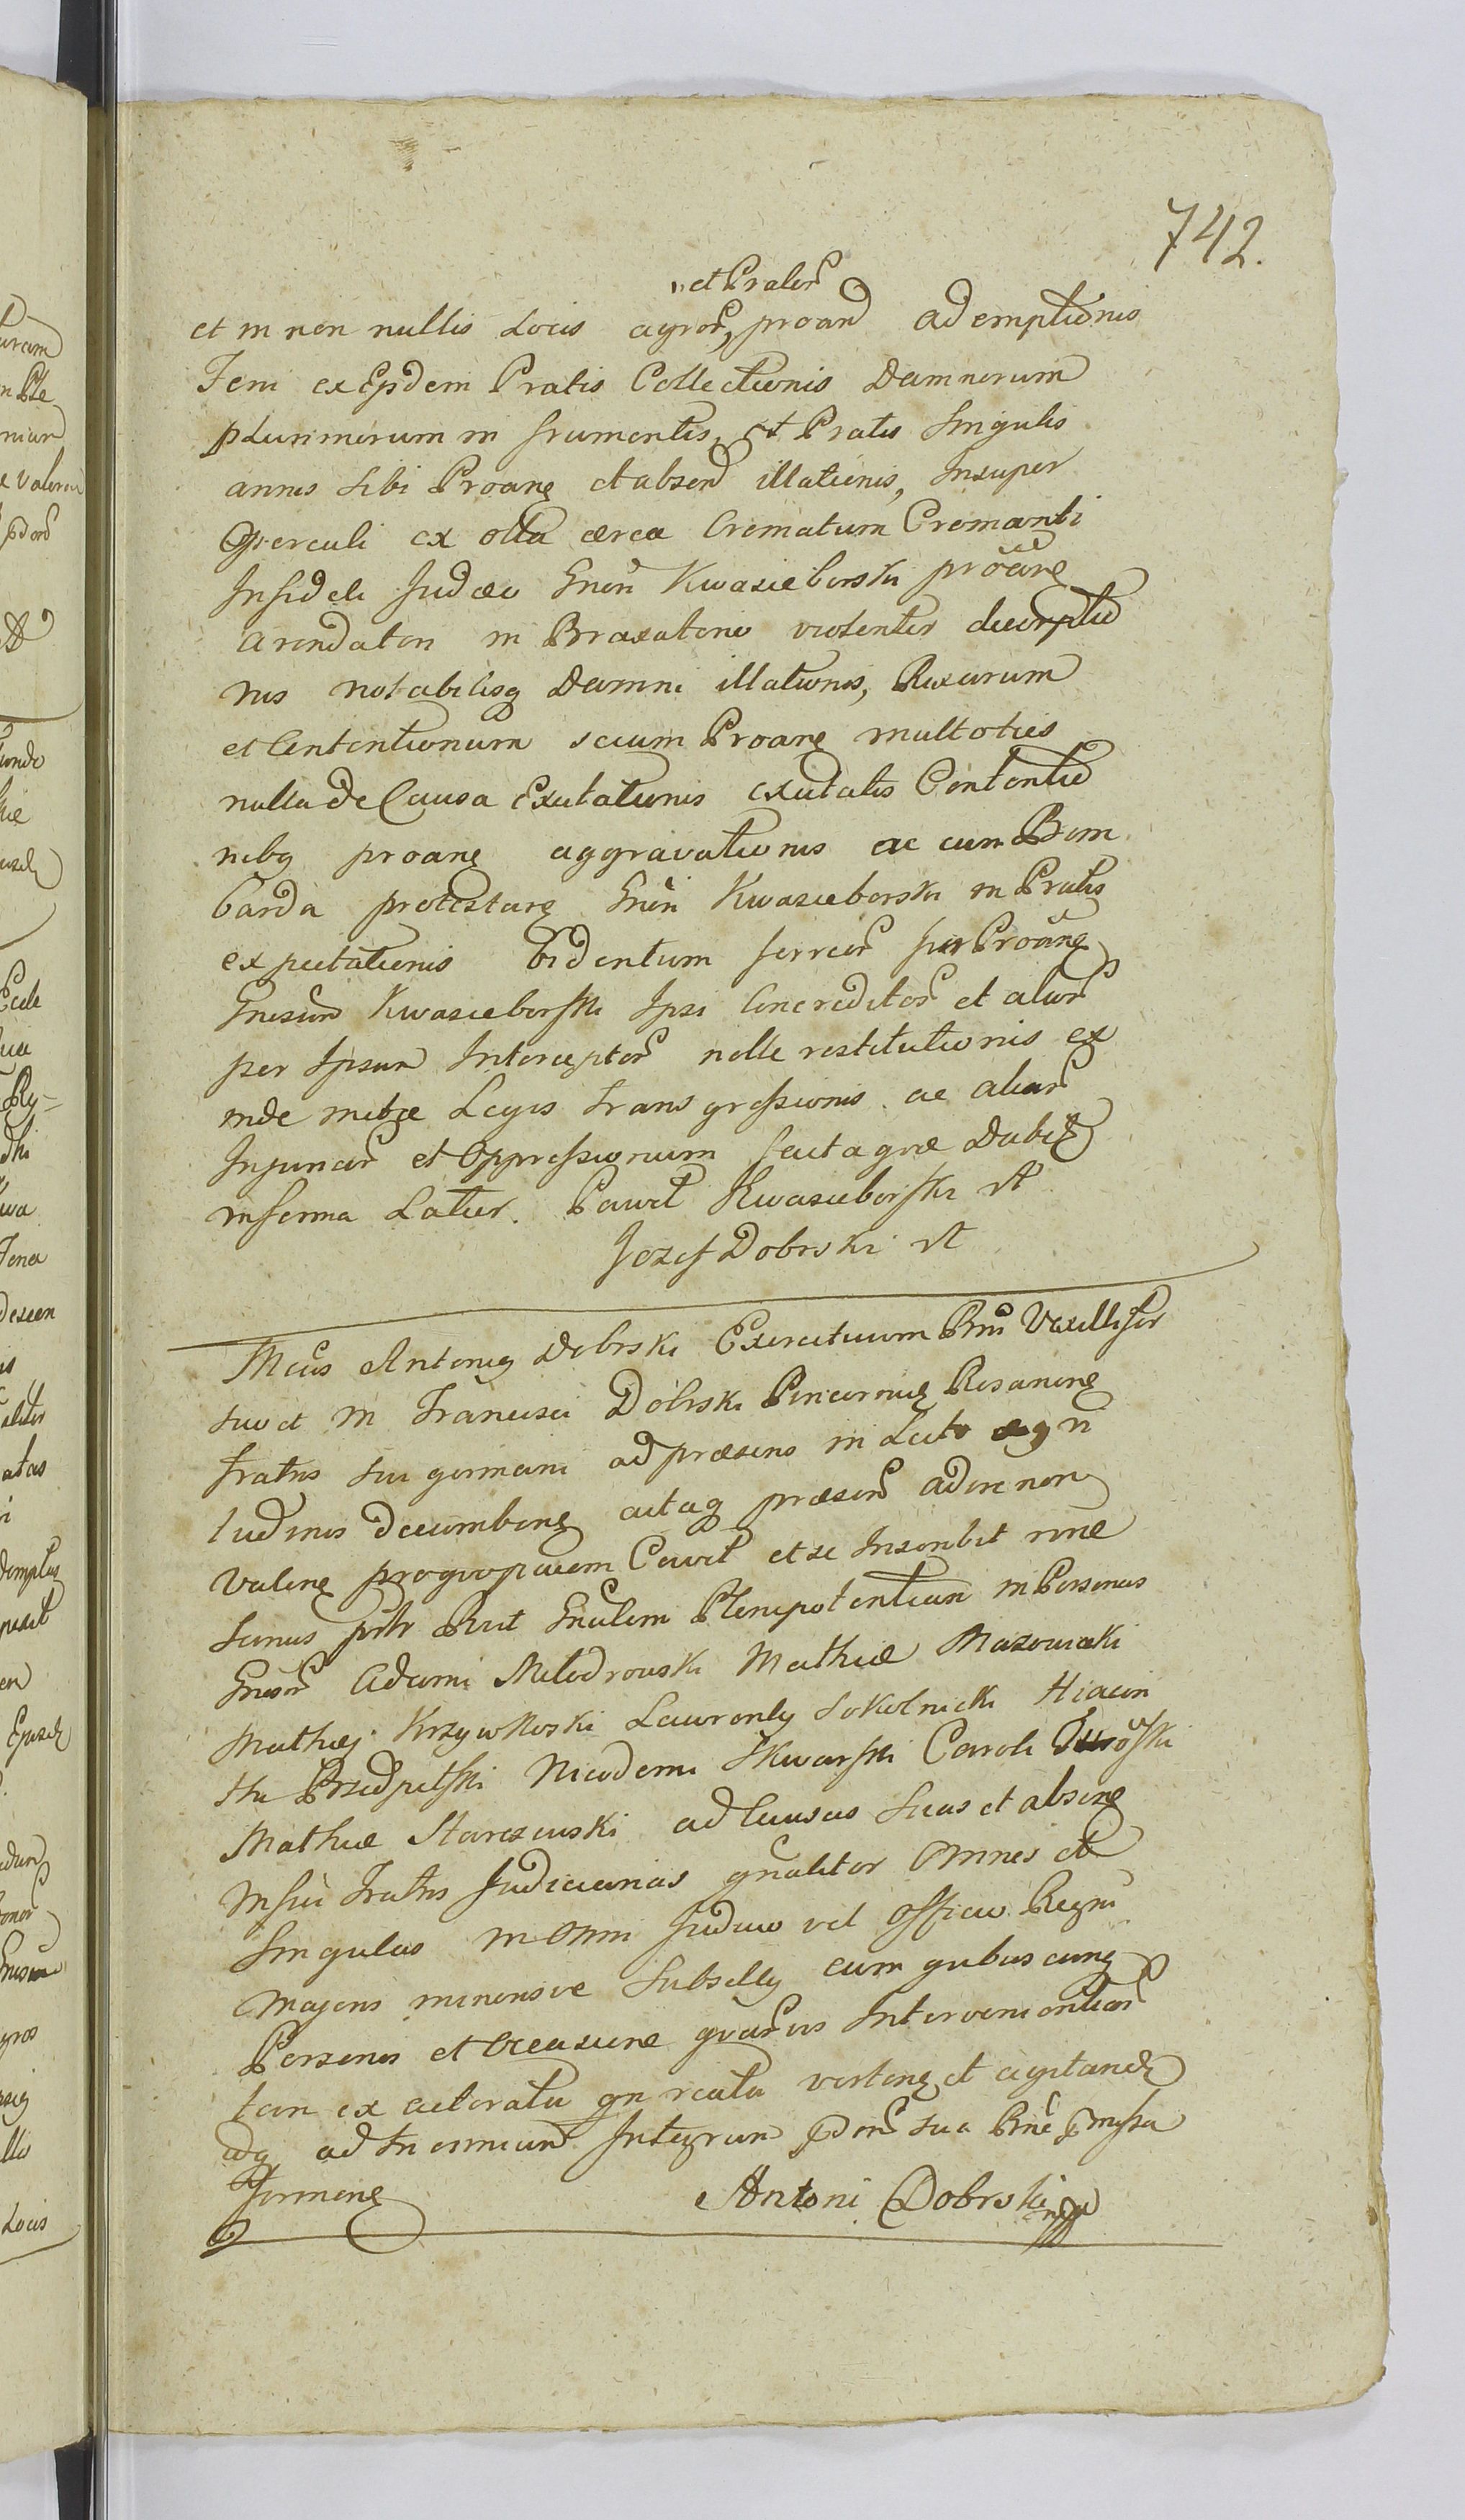 742.
et Prator
et in non nullis Locis agror, proand ademptionis
Feni ex Ejsdem Pratis Collectionis Damnorum
plurimorum in frumentis, et Pratis Singulis
annis sibi Proang et absend illationis, Insuper
Operculi ex olla aerea Crematum Cremanti
Infideli Judaeo Gnen Kwasieborski proang
arendatori in Braxatorio violenter decerptio
nis notabilisq Damni illationis, Rixarum
et Contentionum secum Proang multoties
nulla de Causa Excitationis excitatis Contentio
nibq proang aggravationis ac cum Bom
barda protestang Gnen Kwasieborski in Pratis
expectationis bidentum ferreor per Proang
Gnesum Kwasieborski Ipsi Concreditor et alior
per Ipsum Interceptor nolle restitutionis ex
inde metae Legis transgressionis ac aliar
Injuriar et Oppressionum
in forma Latior. Paweł Kwasieborski
Jozef Dobrski
Mcus Antonig Dobrski Exercituum Vexillifer
suo et M Francisci Dobrski Pincernae Rosaneng
fratris sui germani ad praesens in Lecto aegri
tudinis decumbeng actaq praesen adire non
valeng proqvo cavet et se Inscribit
Sanus Gnalem Plenipotentiam in Personas
Gnesor Adami Milodrowski Mathiae Mazowiecki
Mathiej Krzywkoski Laurenty Sokolnicki Hiacin
thi Przedpelski Nicodemi Skwarski Caroli
Mathiae Starczewski ad Causas Suas et abseng
Msui Fratris Judiciarias gnaliter Omnes et
Singulas in Omni Judicio vel Officio Regni
Majoris minorisve Subselly cum qvibuscunq
Personis et Occasione qvarvis Intervenientiar
tam ex actoratu qn reatu verteng et agitand
adq ad Integrum sua
Termeng Antoni Dobrski mpp